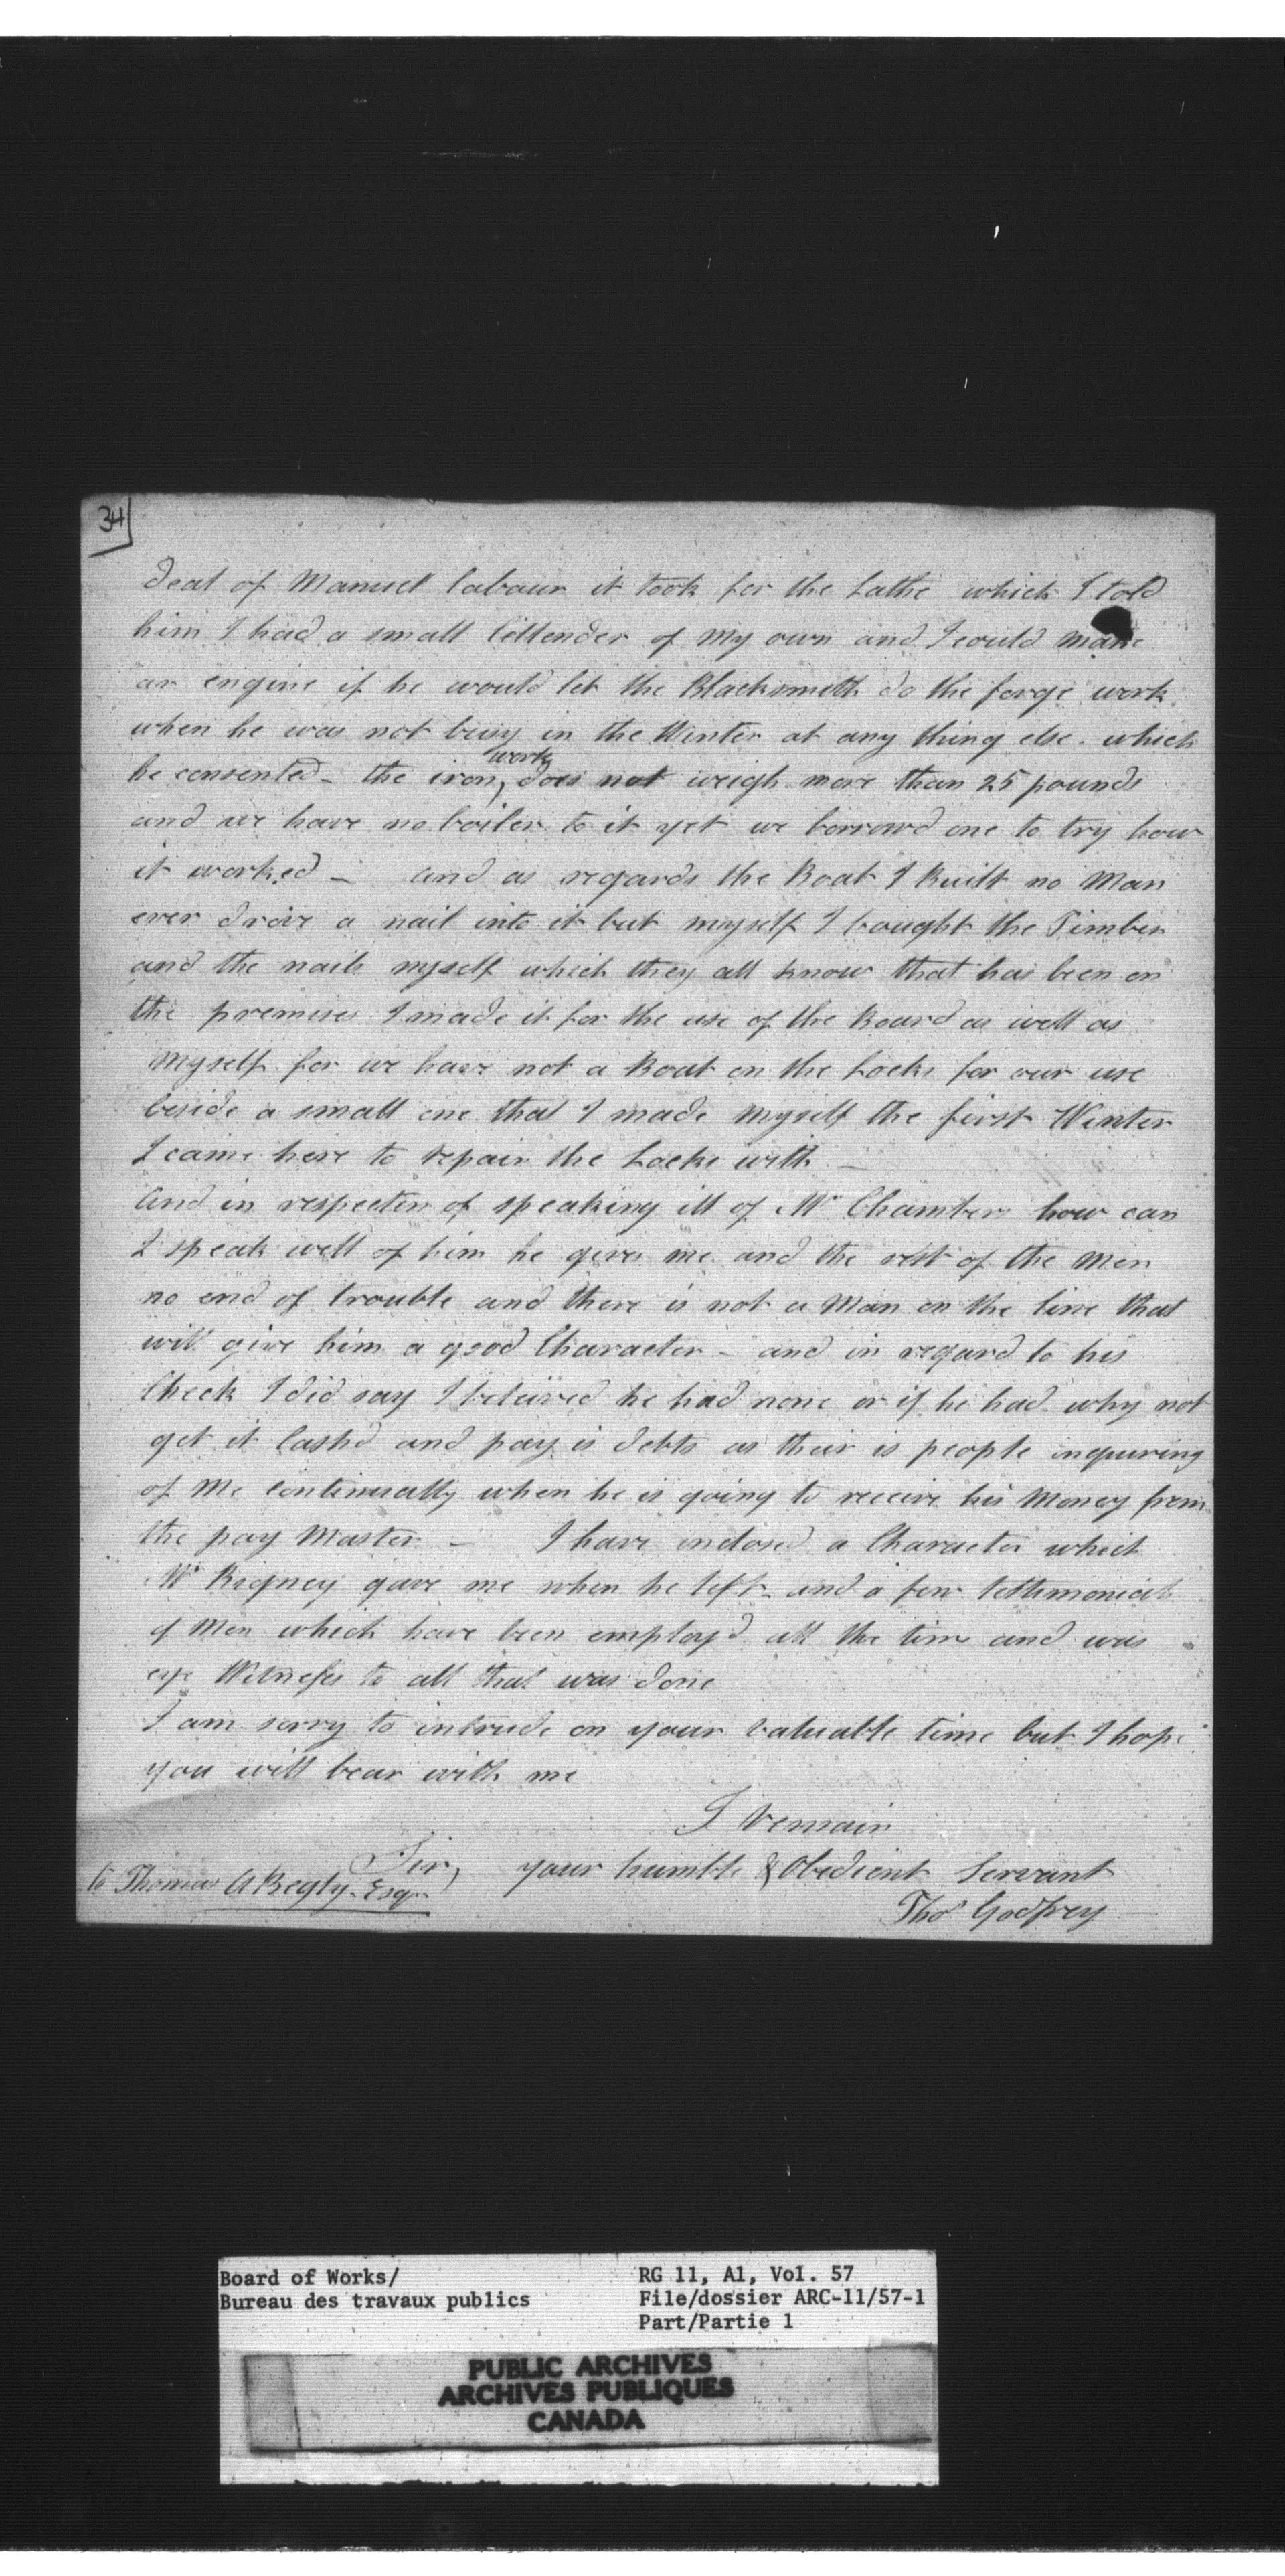 34
deal of Manuel labour it took for the Lathe which I told
him I had a small Cillender of my own and I could make
an engine if he would let the Blacksmith do the forge work
when he was not busy in the Winter at any thing else. which
he consented - the iron work does not weigh more than 25 pounds
and we have no boiler to it yet we borrowd one to try how
it worked - and as regards the Boat I Built no Man
ever drove a nail into it but myself I bought the Timber
and the nails myself which they all know that has been on
the premises I made it for the use of the Board as well as
Myself for we have not a Boat on the Locks for our use
beside a small one that I made Myself the first Winter
I came here to repair the Locks with -
And in respecten of speaking ill of Mr Chambers how can
I speak well of him he gives me and the rest of the Men
no end of trouble and there is not a Man on the line that
will give him a good Character - and in regard to his
Check I did say I beleived he had none or if he had why not
get it Cashd and pay is debts as their is people inquiring
of Me Continually when he is going to receive his Money from
the pay Master - I have inclosed a Character which
Mr Rigney gave me when he left - and a few testimonials
of Men which have been employd all the time and was
eye Witness to all that was done
I am sorry to intrude on your Valuable time but I hope
you will bear with me
I remain
Sir, your humble & Obedient Servant
to Thomas A Begly. Esqr
Thos Godfrey
Board of Works/
Bureau des travaux publics
RG 11, A1, Vol. 57
File/dossier ARC-11/57-1
Part/Partie 1
PUBLIC ARCHIVES
ARCHIVES PUBLIQUES
CANADA